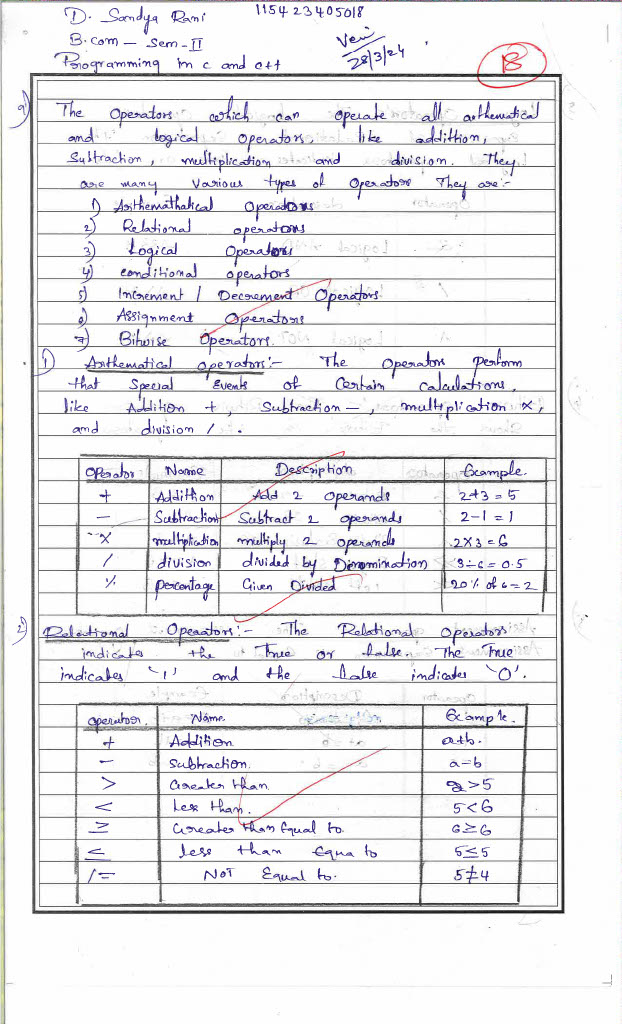 D. Sandya Rani 115423405018
B.com – Sem-II
28/3/24
Programming in c and c++
18
The Operators which can operate all arthematical
and logical operators, like addittion,
Subtraction, multiplication and division. They
are many Various types of Operators They are:-
1) Arithemathatical Operators
2) Relational operators
3) Logical Operators
4) conditional operators
5) Increment / Decrement Operators
6) Assignment Operators
7) Bitwise Operators.
1) Arithematical operators:- The Operators Perform
that Special Events of Certain calculations,
like Addition +, Subtraction –, multiplication ×,
and division / .
Operator Name Description Example
+ Addittion Add 2 operands 2+3=5
– Subtraction Subtract 2 operands 2-1=1
× multiplication multiply 2 operands 2×3=6
/ division divided by Dinomination 3÷6=0.5
% percentage Given Divided 20% of 6=2
2) Relational Operators:- The Relational Operators
indicates the True or false. The True
indicates '1' and the false indicates '0'.
operator. Name. Example.
+ Addition a+b.
– Subtraction. a-b
> Greater than >5
< Less than. 5<6
≥ Greater than Equal to 6≥6
≤ less than Equa to 5≤5
!= NOT Equal to. 5≠4